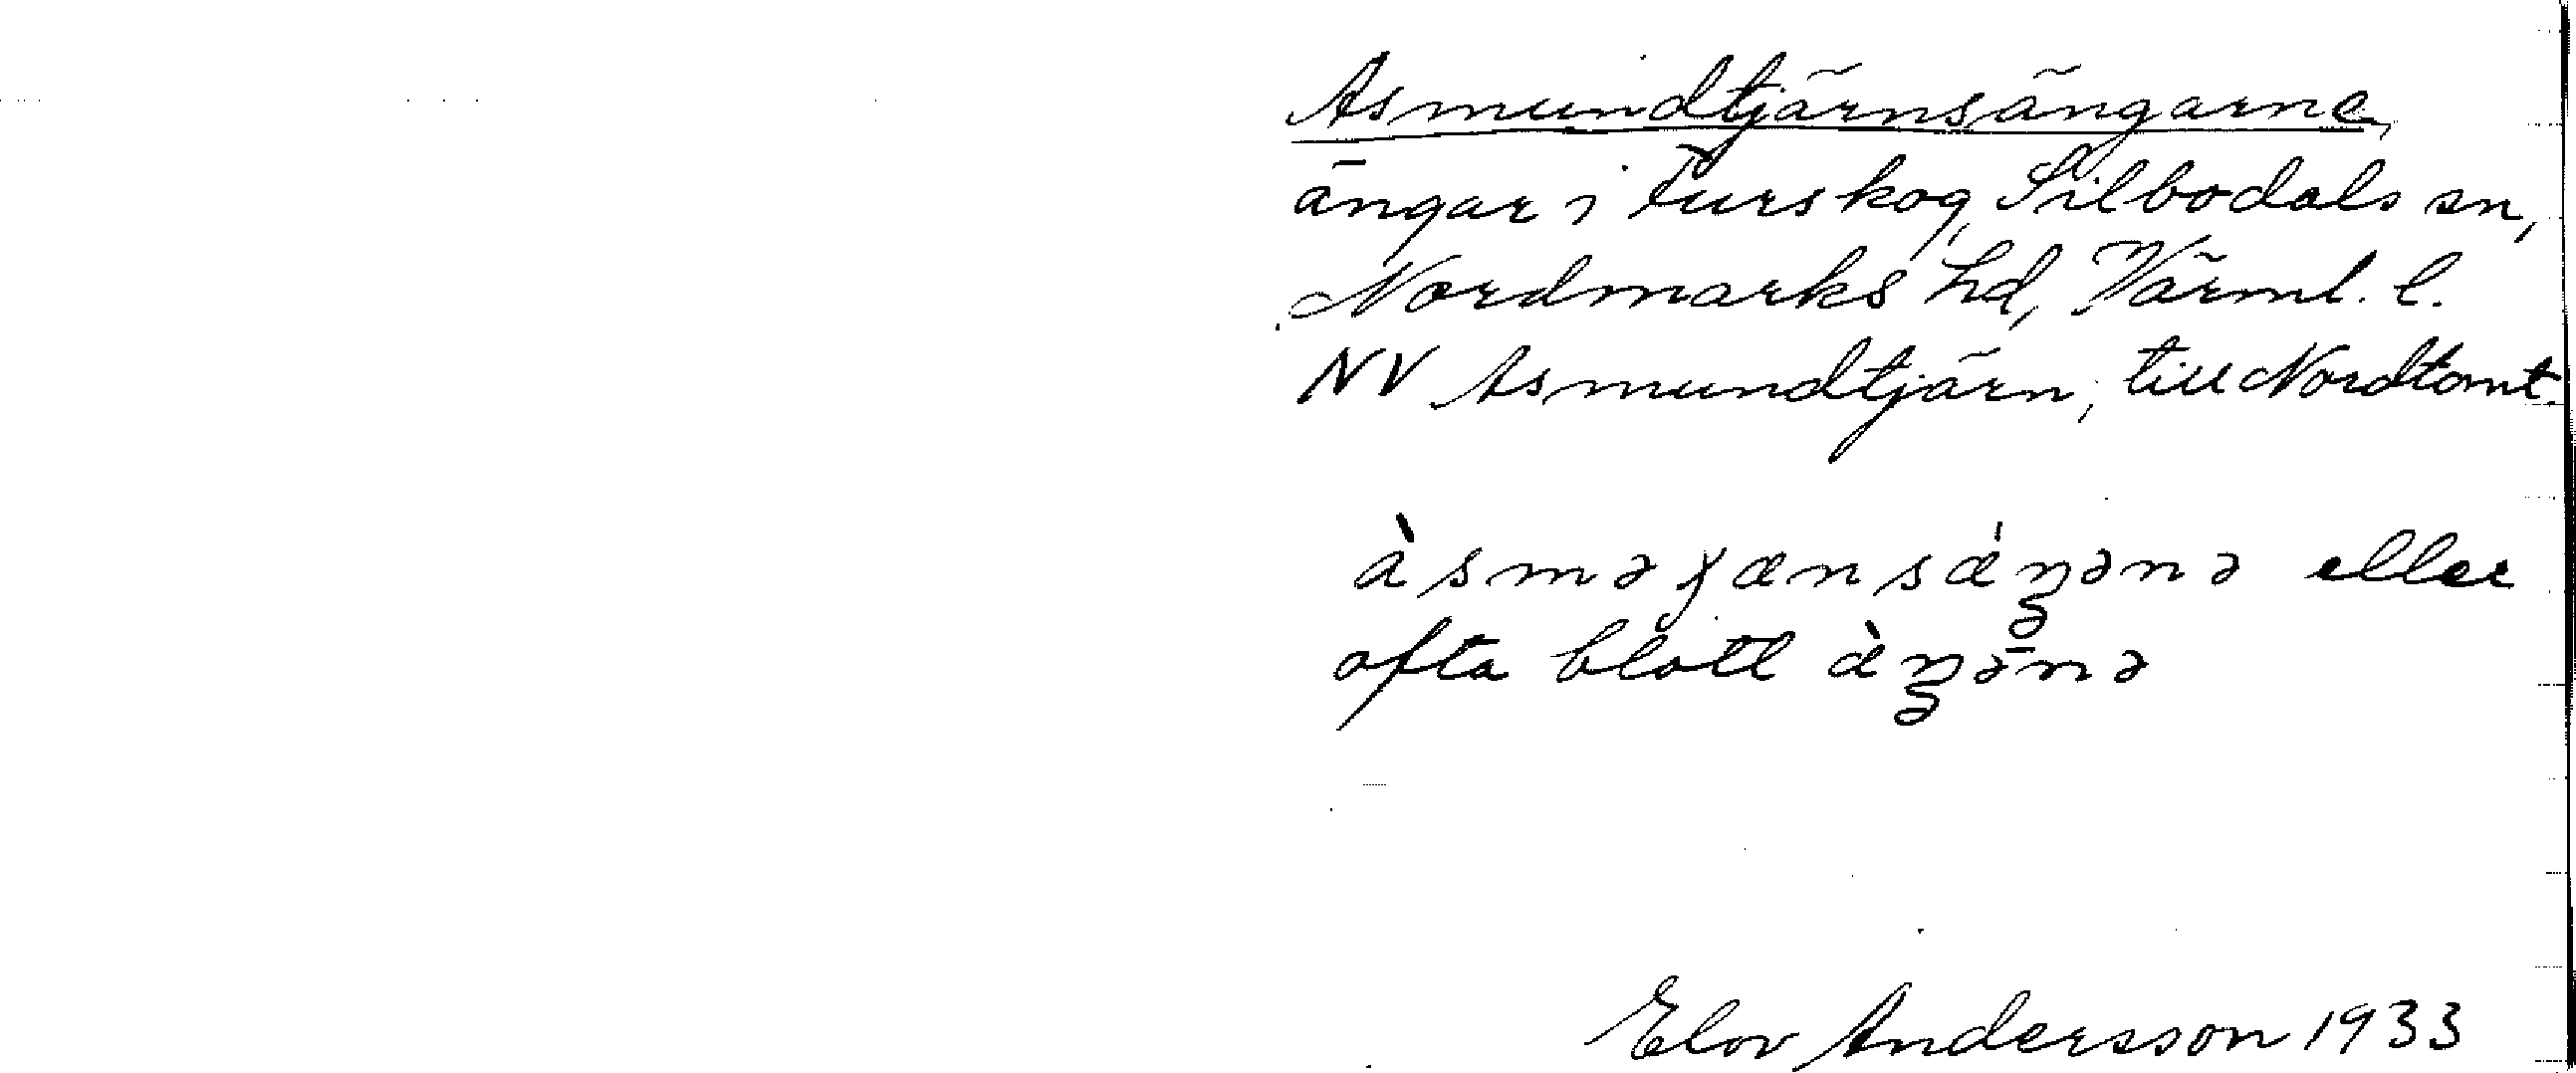 Asmundtjärnsängarne,
ängar i Furskog, Silbodals sn,
Nordmarks hd, Värml. l.
NV Asmundtjärn, till Nordtomt.
eller
ofta blott
Elov Andersson 1933